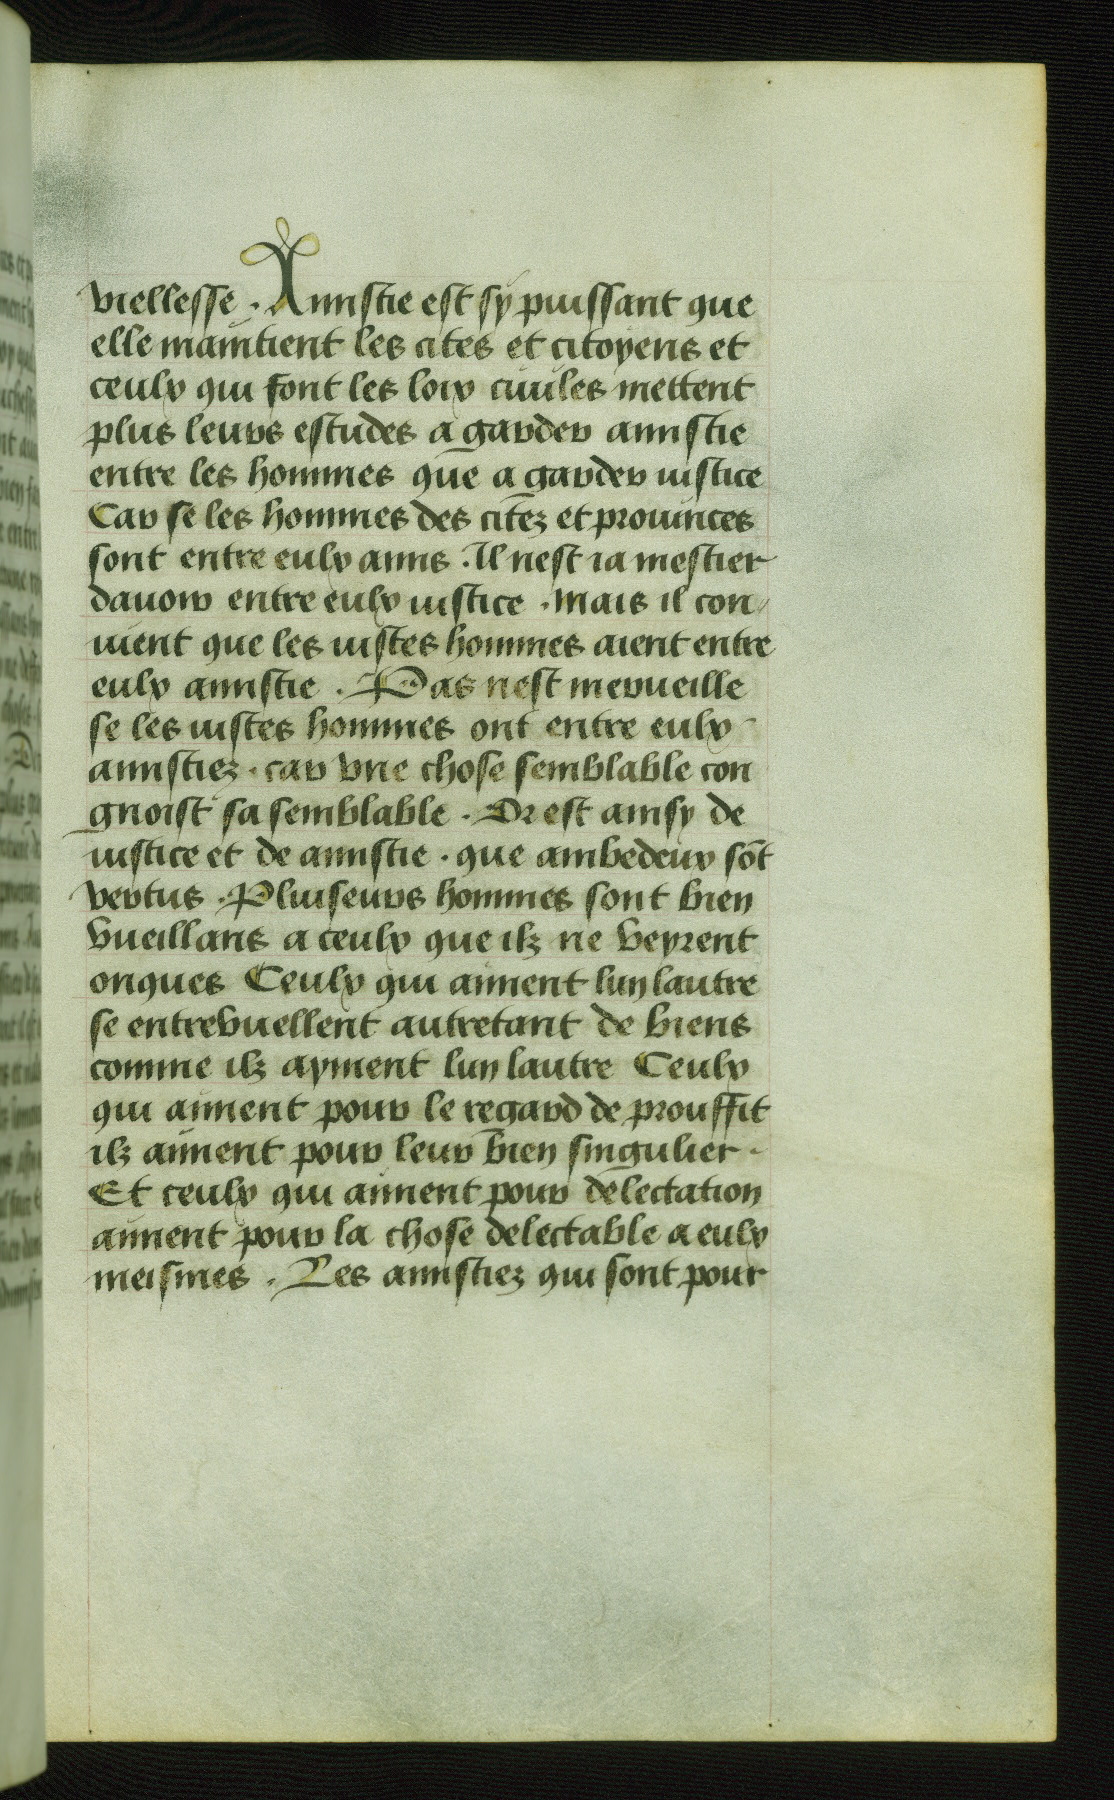 viellesse . Amistie est sy puissant que
elle maintient les cites et citoyens et
ceulx qui font les loix ciuiles mettent
plus leurs estudes a garder amistie
entre les hommes que a garder iustice
Car se les hommes des citez et prouinces
sont entre eulx amis . Il nest ia mestier
dauoir entre eulx iustice . Mais il con
uient que les iustes hommes aient entre
eulx amistie . Pas nest merueille
se les iustes hommes ont entre eulx
amistiez . car vne chose semblable con
gnoist sa semblable . Or est ainsy de
iustice et de amistie . que ambedeux sõt
vertus . Pluiseurs hommes sont bien
vueillans a ceulx que ilz ne veyrent
onques Ceulx qui aiment lun lautre
se entrevuellent autretant de biens
comme ilz ayment lun lautre Ceulx
qui aiment pour le regard de prouffit
ilz aiment pour leur bien singulier .
Et ceulx qui aiment pour delectation
aiment pour la chose delectable a eulx
meismes . Les amistiez qui sont pour